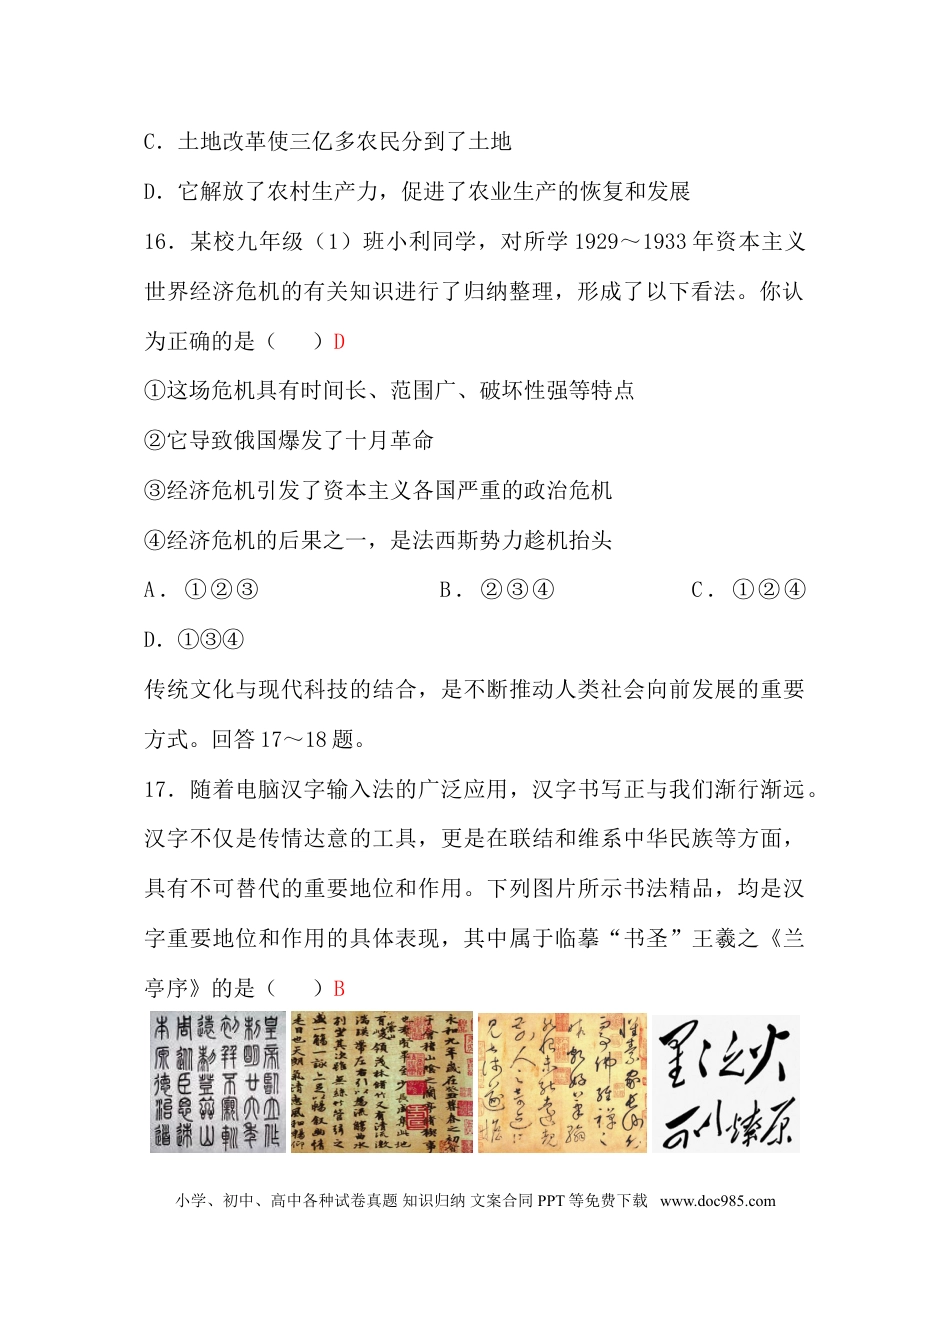 C．土地改革使三亿多农民分到了土地
D．它解放了农村生产力，促进了农业生产的恢复和发展
16．某校九年级（1）班小利同学，对所学 1929～1933 年资本主义
世界经济危机的有关知识进行了归纳整理，形成了以下看法。你认
为正确的是（    ）D
①这场危机具有时间长、范围广、破坏性强等特点
②它导致俄国爆发了十月革命
③经济危机引发了资本主义各国严重的政治危机
④经济危机的后果之一，是法西斯势力趁机抬头
A．①②③ B．②③④ C．①②④
D．①③④
传统文化与现代科技的结合，是不断推动人类社会向前发展的重要
方式。回答 17～18 题。
17．随着电脑汉字输入法的广泛应用，汉字书写正与我们渐行渐远。
汉字不仅是传情达意的工具，更是在联结和维系中华民族等方面，
具有不可替代的重要地位和作用。下列图片所示书法精品，均是汉
字重要地位和作用的具体表现，其中属于临摹“书圣”王羲之《兰
亭序》的是（    ）B
皇帝
永和九年歲在
星星之火
可以燎原
小学、初中、高中各种试卷真题 知识归纳 文案合同 PPT 等免费下载   www.doc985.com